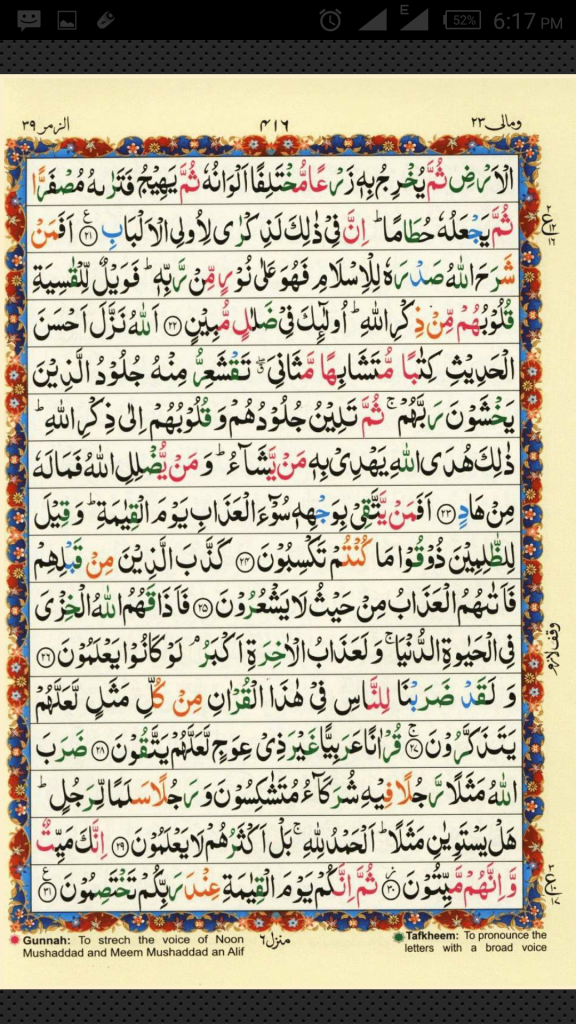 E 52% 6:17 PM
الزمر ٣٩ ٤١٦ ومالى ٢٣
الْاَرْضِ ثُمَّ يُخْرِجُ بِهٖ زَرْعًا مُّخْتَلِفًا اَلْوَانُهٗ ثُمَّ يَهِيْجُ فَتَرٰىهُ مُصْفَرًّا
ثُمَّ يَجْعَلُهٗ حُطَامًا ؕ اِنَّ فِيْ ذٰلِكَ لَذِكْرٰى لِاُولِى الْاَلْبَابِ ﴿۲۱﴾ اَفَمَنْ
شَرَحَ اللّٰهُ صَدْرَهٗ لِلْاِسْلَامِ فَهُوَ عَلٰى نُوْرٍ مِّنْ رَّبِّهٖ ؕ فَوَيْلٌ لِّلْقٰسِيَةِ
قُلُوْبُهُمْ مِّنْ ذِكْرِ اللّٰهِ ؕ اُولٰٓئِكَ فِيْ ضَلٰلٍ مُّبِيْنٍ ﴿۲۲﴾ اَللّٰهُ نَزَّلَ اَحْسَنَ
الْحَدِيْثِ كِتٰبًا مُّتَشَابِهًا مَّثَانِيَ ۖ تَقْشَعِرُّ مِنْهُ جُلُوْدُ الَّذِيْنَ
يَخْشَوْنَ رَبَّهُمْ ۚ ثُمَّ تَلِيْنُ جُلُوْدُهُمْ وَقُلُوْبُهُمْ اِلٰى ذِكْرِ اللّٰهِ ؕ
ذٰلِكَ هُدَى اللّٰهِ يَهْدِيْ بِهٖ مَنْ يَّشَآءُ ؕ وَمَنْ يُّضْلِلِ اللّٰهُ فَمَا لَهٗ
مِنْ هَادٍ ﴿۲۳﴾ اَفَمَنْ يَّتَّقِيْ بِوَجْهِهٖ سُوْٓءَ الْعَذَابِ يَوْمَ الْقِيٰمَةِ ؕ وَقِيْلَ
لِلظّٰلِمِيْنَ ذُوْقُوْا مَا كُنْتُمْ تَكْسِبُوْنَ ﴿۲۴﴾ كَذَّبَ الَّذِيْنَ مِنْ قَبْلِهِمْ
فَاَتٰىهُمُ الْعَذَابُ مِنْ حَيْثُ لَا يَشْعُرُوْنَ ﴿۲۵﴾ فَاَذَاقَهُمُ اللّٰهُ الْخِزْيَ
فِى الْحَيٰوةِ الدُّنْيَا ۚ وَلَعَذَابُ الْاٰخِرَةِ اَكْبَرُ ۘ لَوْ كَانُوْا يَعْلَمُوْنَ ﴿۲۶﴾
وَلَقَدْ ضَرَبْنَا لِلنَّاسِ فِيْ هٰذَا الْقُرْاٰنِ مِنْ كُلِّ مَثَلٍ لَّعَلَّهُمْ
يَتَذَكَّرُوْنَ ﴿۲۷﴾ۚ قُرْاٰنًا عَرَبِيًّا غَيْرَ ذِيْ عِوَجٍ لَّعَلَّهُمْ يَتَّقُوْنَ ﴿۲۸﴾ ضَرَبَ
اللّٰهُ مَثَلًا رَّجُلًا فِيْهِ شُرَكَآءُ مُتَشٰكِسُوْنَ وَرَجُلًا سَلَمًا لِّرَجُلٍ ؕ
هَلْ يَسْتَوِيٰنِ مَثَلًا ؕ اَلْحَمْدُ لِلّٰهِ ۚ بَلْ اَكْثَرُهُمْ لَا يَعْلَمُوْنَ ﴿۲۹﴾ اِنَّكَ مَيِّتٌ
وَّاِنَّهُمْ مَّيِّتُوْنَ ﴿۳۰﴾ ثُمَّ اِنَّكُمْ يَوْمَ الْقِيٰمَةِ عِنْدَ رَبِّكُمْ تَخْتَصِمُوْنَ ﴿۳۱﴾
وقف لازم
منزل ٦
Gunnah: To strech the voice of Noon
Mushaddad and Meem Mushaddad an Alif
Tafkheem: To pronounce the
letters with a broad voice